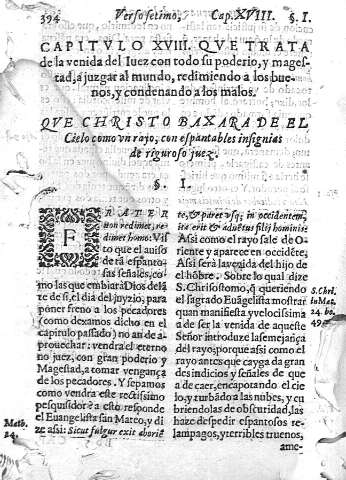 394 Verso setimo, Cap. XVIII. §. I.
CAPITVLO XVIII. QVE TRATA
de la venida del Iuez con todo su poderio, y mages-
tad, a juzgar al mundo, redimiendo a los bue-
nos, y condenando a los malos.
QVE CHRISTO BAXARA DE EL
Cielo como vn rayo, con espantables insignias
de riguroso juez.
§. I.
FRATER
non redimet, re-
dimet homo: Vis-
to que el auiso
de tā espanto-
sas señales, co-
mo las que embiarà Dios delā
te de si, el dia del juyzio, para
poner freno a los pecadores
(como dexamos dicho en el
capitulo passado) no an de a-
prouechar: vendra el eterno
no juez, con gran poderio y
Magestad, a tomar vengança
de los pecadores. Y sepamos
como vendra este rectissimo
pesquisidor: a esto responde
el Euangelista san Mateo, y di
ze assi: Sicut fulgur exit ab oriē
Math.
24.
te, & paret vsq; in occidentem,
ita erit & aduētus filij hominis
Assi como el rayo sale de O-
riente y aparece en occidēte,
Assi será la venida del hijo de
el hōbre. Sobre lo qual dize
S. Chrisostomo, q̄ queriendo
el sagrado Euāgelista mostrar
quan manifiesta y velocissima
a de ser la venida de aqueste
Señor introduze la semejança
del rayo; porque assi como el
rayo antes que cayga da gran
des indicios y señales de que
a de caer, encapotando el cie
lo, y turbādo a las nubes, y cu
briendolas de obscuridad, las
haze despedir espantosos re-
lampagos, y terribles truenos,
ame-
S. Chri.
in Mat.
24. ho.
49.